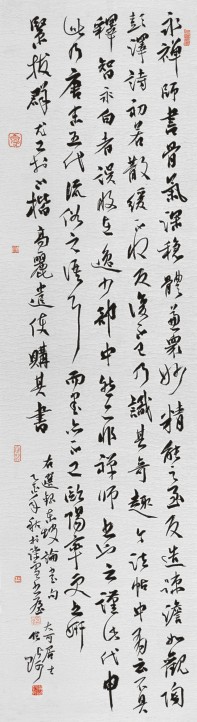 永禪師書骨氣深穩體兼衆妙精能之至反造疎澹如觀陶
彭澤詩初若散緩不收反復不已乃識其奇趣今法帖中有云不具
釋智永白者誤收在逸少部中然亦非禪師書也云謹此代申
此乃唐末五代流俗之語耳而書亦不工歐陽率更書妍
緊拔群尤工於小楷高麗遣使購其書
右選錄東坡論書句 大可居士